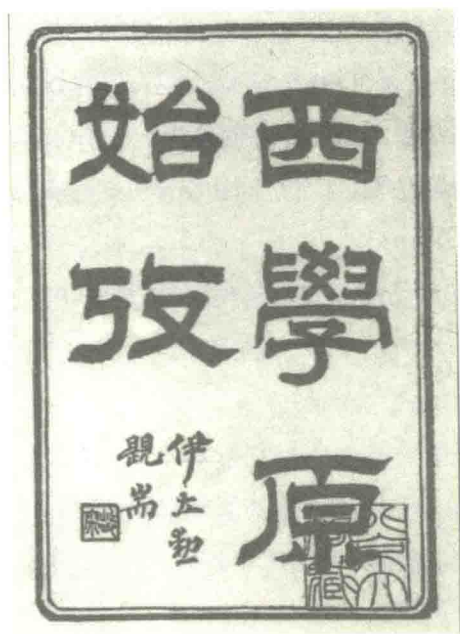 西學原
始攷
伊立勳
耑